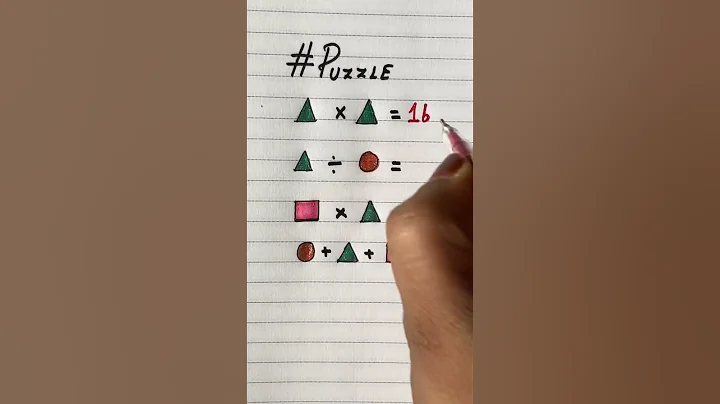 #Puzzle
× = 16
÷ =
×
+ +